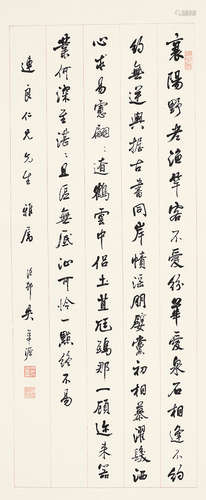 襄陽野老漁竿客不愛紛華愛泉石相逢不約
約無逆輿握古書同岸幘淫朋嬖黨初相慕濯髮洒
心求易慮翩翩遼鶴雲中侶土苴尫鴟那一顧迩來器
業何深至湛湛具區無底沚可怜一點終不易
連良仁兄先生 雅屬
吳華源